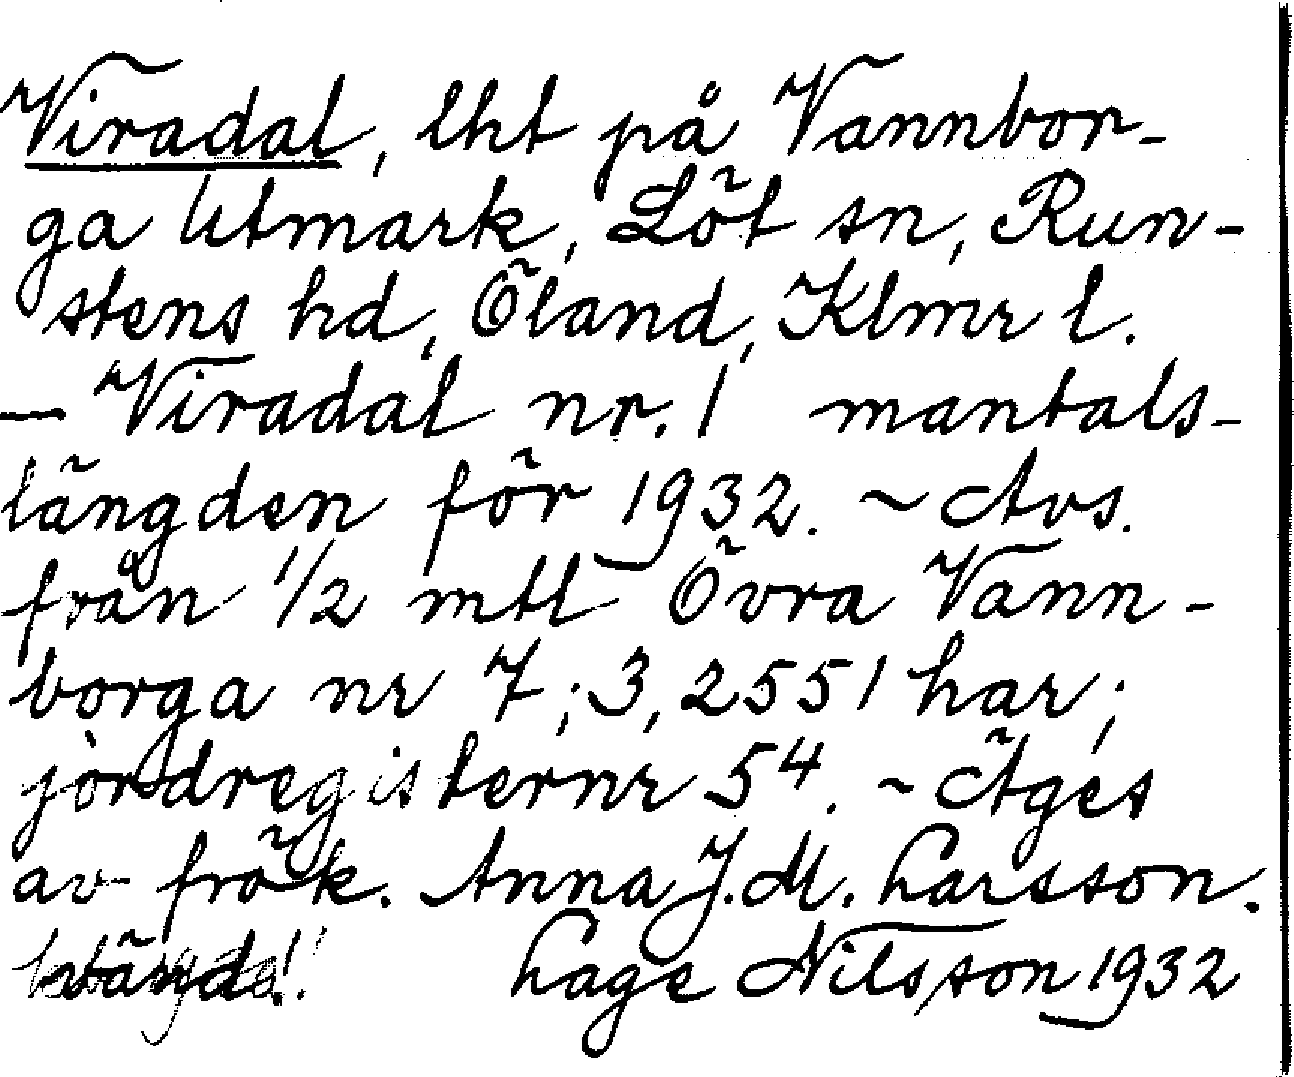 Viradal, lht på Vannbor-
ga Utmark, Löt sn, Run-
stens hd, Öland, Klmr l.
— Viradal nr. 1 mantals-
längden för 1932. ~ Avs.
från 1/2 mtl Övra Vann-
borga nr 7; 3,2551 har;
jordregisternr 54. ~ Äges
av frök. Anna J. M. Larsson.
Lage Nilsson 1932